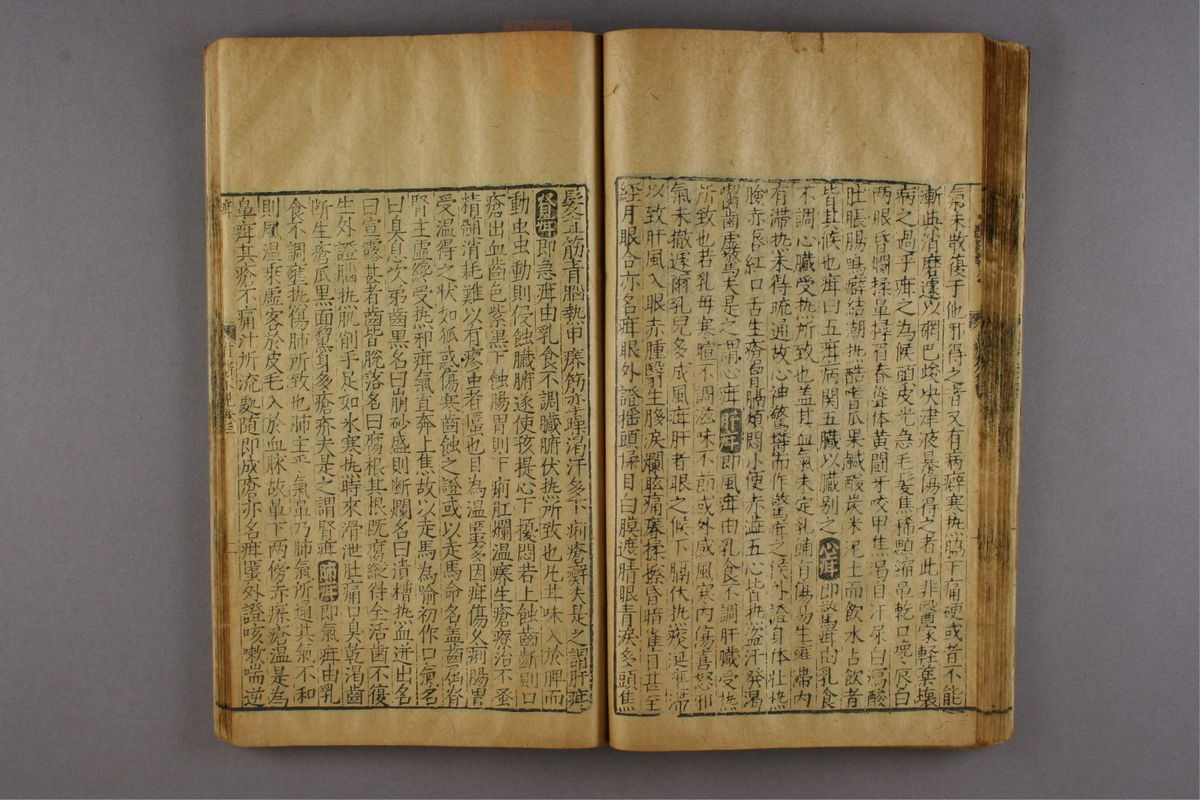 氣未散復于他邪得之者又有病癖寒热脇下痛硬或者不能
漸與消磨遽以硇巴峻决津液暴傷得之者此非醫家輕藥壞
病之過乎疳之為候頭皮光急毛髮焦稀顋縮鼻乾口唇白
两眼昏爛揉鼻捋眉脊聳体黄鬪牙咬甲焦渴自汗尿白瀉酸
肚脹腸鳴癖結潮热酷嗜瓜果鹹酸炭米泥土而飲水占飲者
皆其候也疳曰五疳病関五臓以臓别之心疳即驚疳由乳食
不調心臓受热所致也盖其血氣未定乳哺有傷易生壅滯内
有滯热未得疏通故心神驚搐而作驚疳之候外證身体壮热
臉赤唇紅口舌生瘡胷膈煩悶小便赤澁五心皆热盗汗發渴
嚙齒虚驚夫是之謂心疳肝疳即風疳由乳食不調肝臓受热
所致也若乳母寒暄不調滋味不節或外感風寒内傷喜怒邪
氣未撤遽爾乳兒多成風疳肝者眼之候下膈伏热痰涎壅滯
以致肝風入眼赤腫翳生膿淚爛眩痛癢揉擦昏暗雀目甚至
経月眼合亦名疳眼外證揺頭揉目白膜遮睛眼青淚多頭焦
髮立筋青腦热甲癢筋亦躁渴汗多下痢瘡癬夫是之謂肝疳
腎疳即急疳由乳食不調臓腑伏热所致也凡甘味入於脾而
動虫虫動則侵蝕臓腑遂使孩提心下擾悶若上蝕齒齗則口
瘡出血齒色紫黒下蝕腸胃則下痢肛爛温瘙生瘡療治不蚤
精髓消耗難以有瘳虫者䘌也目為温䘌多因疳傷久痢腸胃
受温得之状如狐惑傷寒齒蝕之證或以走馬命名盖齒屈脊
腎王虚纔受热邪疳氣直奔上焦故以走馬為喻初作口氣名
曰臭息次第齒黒名曰崩砂盛則断爛名曰潰槽热血迸出名
曰宣露甚者齒皆脱落名曰腐根其根既腐縱得全活齒不復
生外證腦热肌削手足如氷寒热時來滑泄肚痛口臭乾渴齒
断生瘡爪黒面黧身多瘡疥夫是之謂腎疳肺疳即氣疳由乳
食不調壅热傷肺所致也肺主乎氣鼻乃肺氣所通其氣不和
則風温乘虚客於皮毛入於血脉故鼻下两傍赤痒瘡温是為
鼻疳其瘡不痛汁所流處随即成瘡亦名疳䘌外證咳嗽喘逆